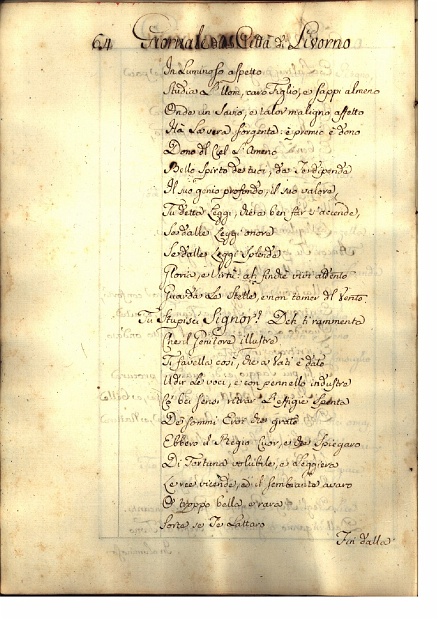 64 Giornale della Città di Livorno
In Luminoso aspetto
Studia L'Uom, caro Figlio, e sappi almeno
Onde un Savio, e talor maligno affetto
Hà La vera sorgente: è premio è dono
Dono del Ciel
Bello Spirto de tuoi, da Te dipenda
Il suo genio profondo, il suo valore,
Tu detta Leggi, ch'ei a ben far s'accende,
Se dalle Leggi onore
Se dalle Leggi Splende
Gloria, e Virtù: ah finche vivi
Guarda Le Stelle, e non temer del Vento.
Tu Stupisci Signor? Deh ti rammenta
Che il Genitore illustre
Ti favella così, che a Vati è dato
Udir Le voci, e con pennello industre
Co' bei sensi ritrar L'effigie Spenta
De sommi Eroi che grato
Ebbero il Regio Cuor, e che Spiegaro
Di Fortuna volubile, e Leggiera
Le ree vicende, e il sembiante avaro
O troppo bella, e rara
Sorte se Te
Fin dalla